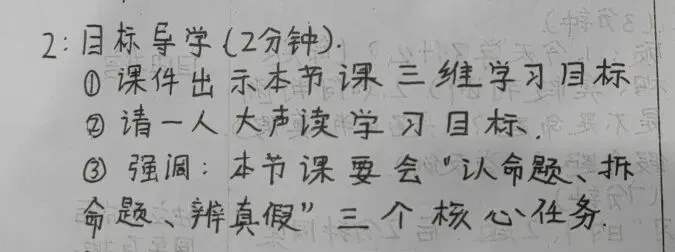 2:目标导学(2分钟).
①课件出示本节课三维学习目标
②请一人大声读学习目标.
③强调:本节课要会"认命题、拆
命题、辨真假"三个核心任务.